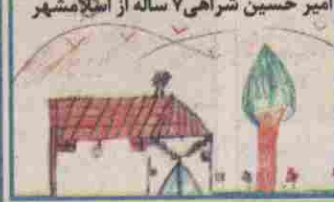 امیر حسین شراهی۷ ساله از اسلامشهر